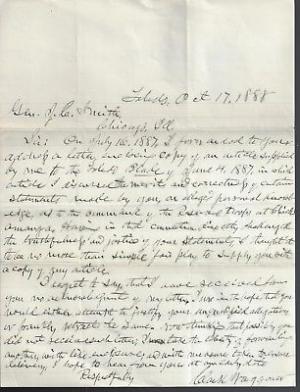 Toledo, Oct 17, 1888
Gen. J. C. Smith
Chicago, Ill
Sir: On July 16, 1887, I forwarded to your
address a letter, enclosing copy of an article supplied
by me to the Toledo Blade of June 4, 1887, in which
article I the merit and correctness of certain
statements made by you, on alleged personal knowl-
edge, as to the of the troops at
Having in that directly challenged
the truthfulness and justice of your statements, I thought it
to be no more than simple fair play to supply you with
a copy of my article.
I regret to say, that I have received from
you no acknowledgment of my letter. in the hope that you
would either attempt to justify your allegations
or frankly retract the same. Now thinking that possibly you
did not receive such letter, I take the liberty of forwarding
another, with like enclosure, as with measures taken to secure
delivery, I hope to hear from you at an early date
Respectfully
Clark Waggoner